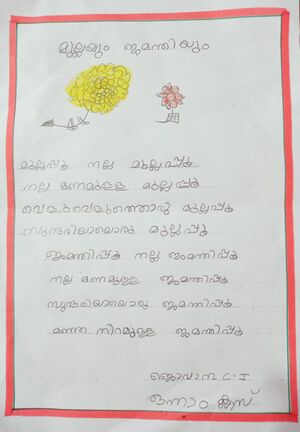 മുല്ലയും ജമന്തിയും
മുല്ലപ്പൂ നല്ല മുല്ലപ്പൂ
നല്ല മണമുള്ള മുല്ലപ്പൂ
വെളുവെളുത്തൊരു മുല്ലപ്പൂ
സുന്ദരിയായൊരു മുല്ലപ്പൂ
ജമന്തിപ്പൂ നല്ല ജമന്തിപ്പൂ
നല്ല മണമുള്ള ജമന്തിപ്പൂ
സുന്ദരിയായൊരു ജമന്തിപ്പൂ
മഞ്ഞ നിറമുള്ള ജമന്തിപ്പൂ
ജൊവാന C.J
ഒന്നാം ക്ലാസ്